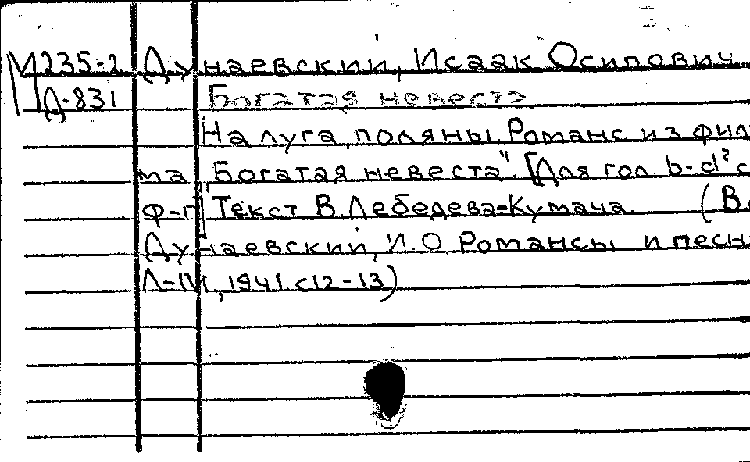 М235-2 Дунаевский, Исаак Осипович
Д-831 Богатая невеста
На луга, поляны. Романс из филь
ма „Богатая невеста". [Для гол b-d² с
ф-п] Текст В. Лебедева-Кумача. (В
Дунаевский, И.О. Романсы и песн
Л-М, 1941. с 12-13)